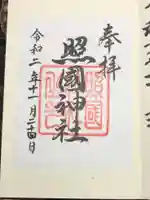 奉拝
照國神社
令和二年十一月二十四日